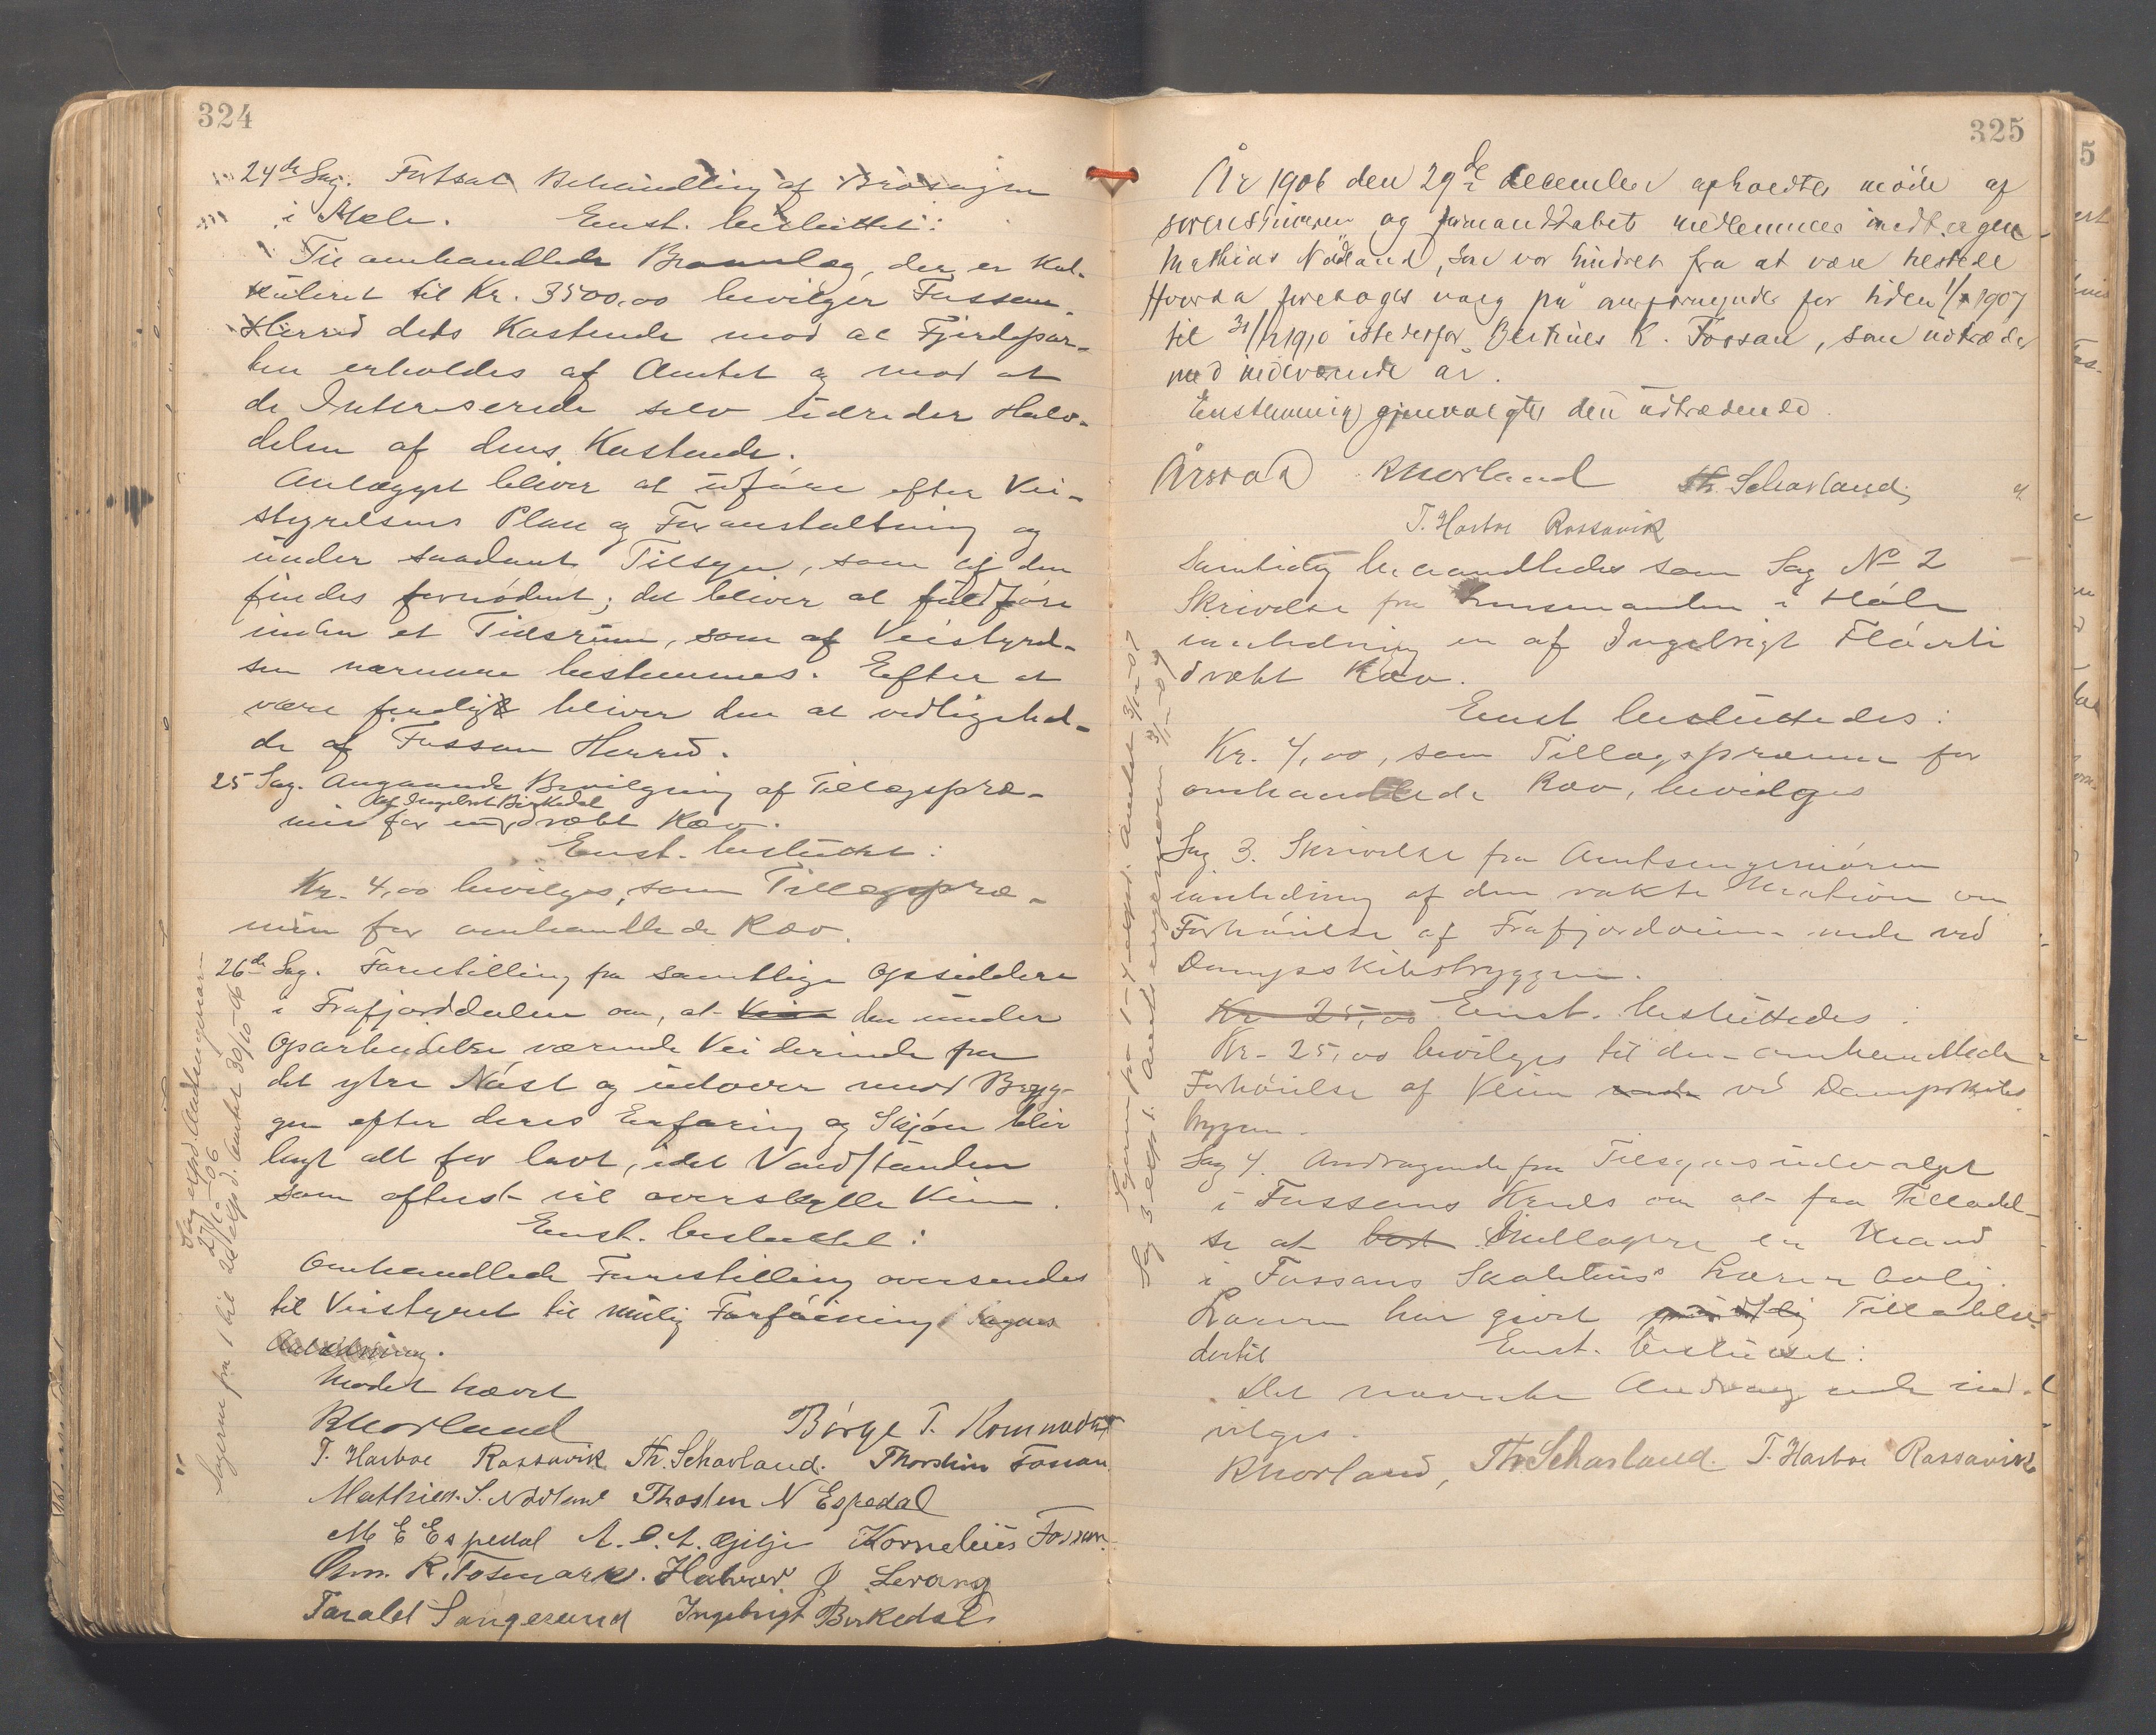 324
24de Sag. Fortsat Behandling af Brosagen
i Mæle. Enst. besluttet:
Til omhandlede Broanlæg, der er kal-
kuleret til Kr. 3500,00 bevilger Fossan
Herred dets Kostende mod at Fjerdepar-
ten erholdes af Amtet og mod at
de Interesserede selv udreder Halv-
delen af dens Kostende.
Anlægget bliver at udføre efter Vei-
styrelsens Plan og Foranstaltning og
under saadant Tilsyn, som af den
findes fornødent; det bliver at fuldføre
inden et Tidsrum, som af Veistyrel-
sen nærmere bestemmes. Efter at
være færdigt bliver den at vedligehol-
de af Fossan Herred.
25 Sag. Angaaende Bevilgning af Tillægspræ-
af Ingebret Birkedal
mie for en dræbt Ræv.
Enst. besluttet:
Kr. 4,00 bevilges, som Tillægspræ-
mie for omhandlede Ræv.
26de Sag. Forestilling fra samtlige Opsiddere
i Frafjorddalen om, at Veien den under
Oparbeidelse værende Vei derinde fra
det ytre Nøst og udover mod Bryg-
gen efter deres Erfaring og Skjøn blir
lagt alt for lavt, idet Vandstanden
som oftest vil overskylle Veien.
Enst. besluttet:
Omhandlede Forestilling oversendes
til Veistyret til mulig Forføining i Sagens
Anledning.
Mødet hævet
RMorland Børge T. Kommedal
T. Harboe Rossavik Th. Schavland. Thorstein Fossan
Mathias S. Nødland Thosten N Espedal
M E Espedal A. O. A. Gilje Kornelius Fossan
Chr. R. Tosmark. Halvor J Levang
Tarald Sangesand Ingebrigt Birkedal
Sagerne fra 1 til 25 expd. Amtet 30/10-06
Sag expd Amtsingeniør-
27/10-06
325
År 1906 den 29de december afholdtes møde af
forenstyreren og formandskabets medlemmer undtagen
Mathias Nødland, som var hindret fra at være tilstede
Hvorda foretoges valg på anførnynder for tiden 1/1 1907
til 31/12 1910 istedetfor Bertines K. Fossan, som udtræder
med indeværende år.
Enstemmig gjenvalgtes den udtrædende.
Årsvold RMorland Th. Schavland
T. Harboe Rossavik
Samtidig behandledes som Sag No 2
Skrivelse fra Lensmanden i Høle
i anledning en af Ingebrigt Fløirli
dræbt Ræv.
Enst besluttedes:
Kr. 4,00, som Tillægspræmie for
omhandlede Ræv, bevilges
Sag 3. Skrivelse fra Amtsingeniøren
i anledning af den vakte Motion om
Forhøielse af Frafjordveien nede ved
Dampskibsbryggen.
Kr 25,00 Enst. besluttedes:
Kr. 25,00 bevilges til den omhandlede
Forhøielse af Veien nede ved Dampskibs
bryggen.
Sag 4. Andragende fra Tilsynsudvalget
i Fossans Kreds om at faa Tilladel-
se at bort indlogere en Mand
i Fossans Skolehus's Lærerbolig.
Læreren har givet mundtlig Tilladelse
dertil Enst. besluttet:
Det nævnte Andragende ind-
vilges.
RMorland, Th. Schavland. T. Harboe Rossavik
Sagerne fra 1-4 expd. Amtet 3/1-07
Sag 3 expd. Amtsingeniøren 3/1-07